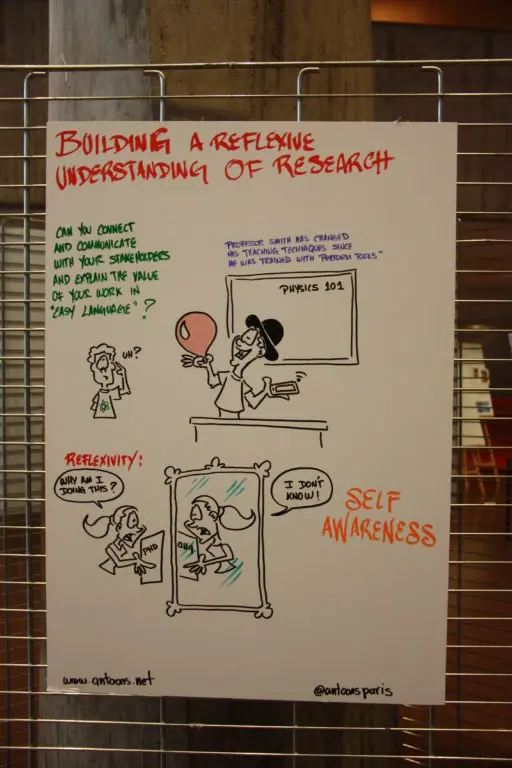 BUILDING A REFLEXIVE
UNDERSTANDING OF RESEARCH
CAN YOU CONNECT
AND COMMUNICATE
WITH YOUR STAKEHOLDERS
AND EXPLAIN THE VALUE
OF YOUR WORK IN
"EASY LANGUAGE"?
"PROFESSOR SMITH HAS CHANGED
HIS TEACHING TECHNIQUES SINCE
HE WAS TRAINED WITH "PERFORM TOOLS"
PHYSICS 101
UH?
REFLEXIVITY:
WHY AM I
DOING THIS?
I DON'T
KNOW!
PHD
PHD
SELF
AWARENESS
www.antoons.net
@antoonsparis